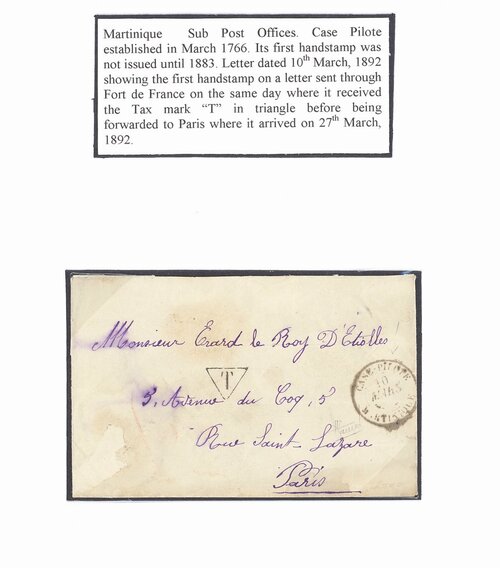 Martinique Sub Post Offices. Case Pilote
established in March 1766. Its first handstamp was
not issued until 1883. Letter dated 10th March, 1892
showing the first handstamp on a letter sent through
Fort de France on the same day where it received
the Tax mark “T” in triangle before being
forwarded to Paris where it arrived on 27th March,
1892.
Monsieur Erard le Roy D'Etiolles
T
5, Avenue du Coq, 5
Rue Saint-Lazare
Paris
CASE-PILOTE
10
MARS
MARTINIQUE